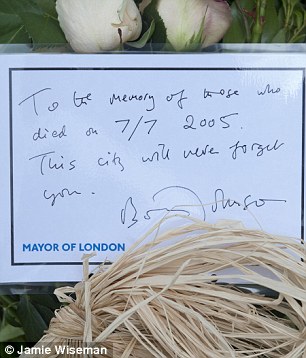 To the memory of those who
died on 7/7 2005.
This city will never forget
you.
Boris Johnson
MAYOR OF LONDON
© Jamie Wiseman